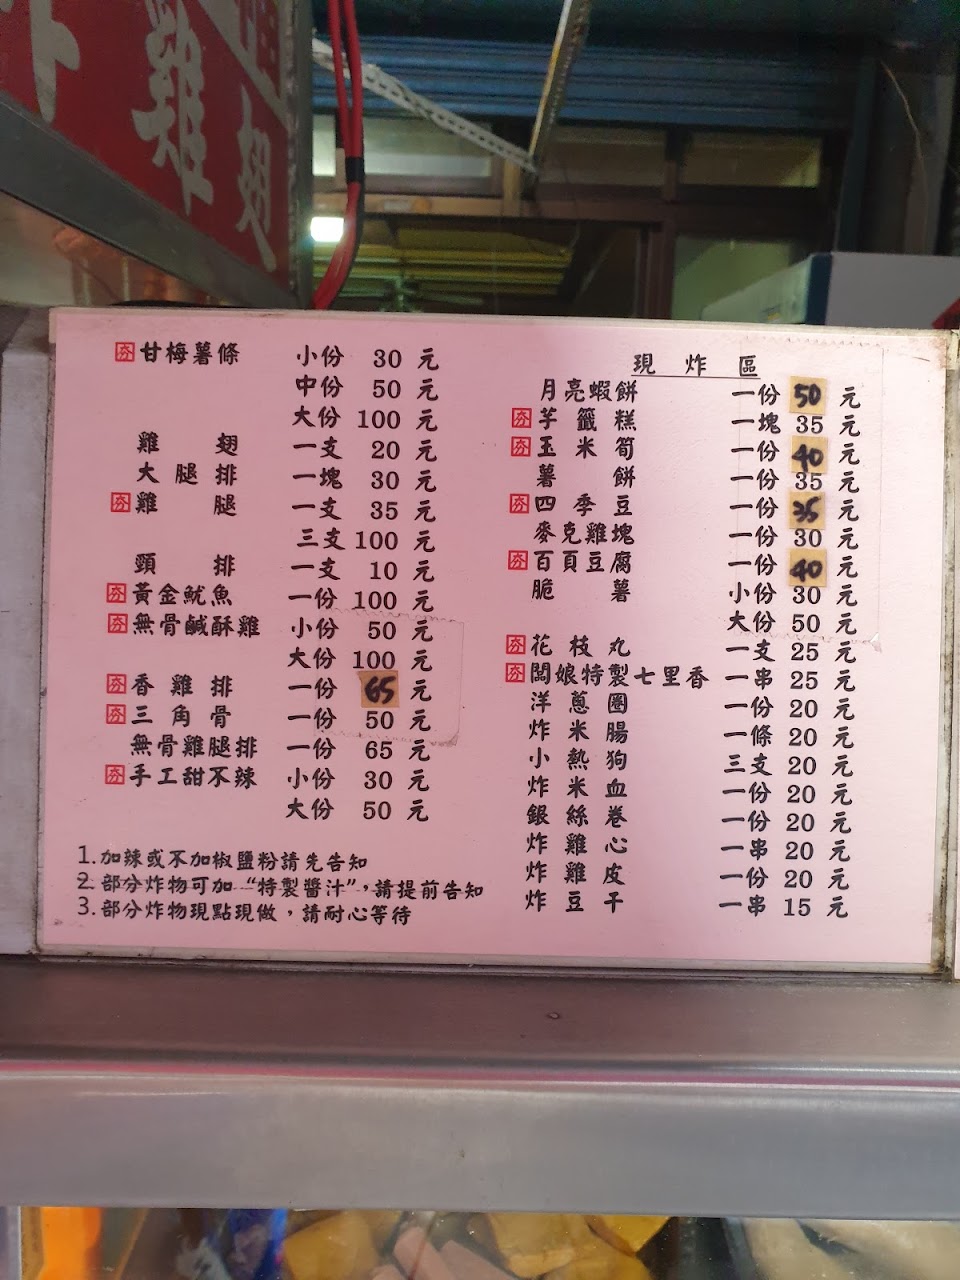 雞翅
夯甘梅薯條 小份 30 元
中份 50 元
大份 100 元
雞翅 一支 20 元
大腿排 一塊 30 元
夯雞腿 一支 35 元
三支 100 元
頸排 一支 10 元
夯黃金魷魚 一份 100 元
夯無骨鹹酥雞 小份 50 元
大份 100 元
夯香雞排 一份 65 元
夯三角骨 一份 50 元
無骨雞腿排 一份 65 元
夯手工甜不辣 小份 30 元
大份 50 元
1.加辣或不加椒鹽粉請先告知
2.部分炸物可加“特製醬汁”，請提前告知
3.部分炸物現點現做，請耐心等待
現炸區
月亮蝦餅 一份 50 元
夯芋籤糕 一塊 35 元
夯玉米筍 一份 40 元
薯餅 一份 35 元
夯四季豆 一份 35 元
麥克雞塊 一份 30 元
夯百頁豆腐 一份 40 元
脆薯 小份 30 元
大份 50 元
夯花枝丸 一支 25 元
夯闆娘特製七里香 一串 25 元
洋蔥圈 一份 20 元
炸米腸 一條 20 元
小熱狗 三支 20 元
炸米血 一份 20 元
銀絲卷 一份 20 元
炸雞心 一串 20 元
炸雞皮 一份 20 元
炸豆干 一串 15 元